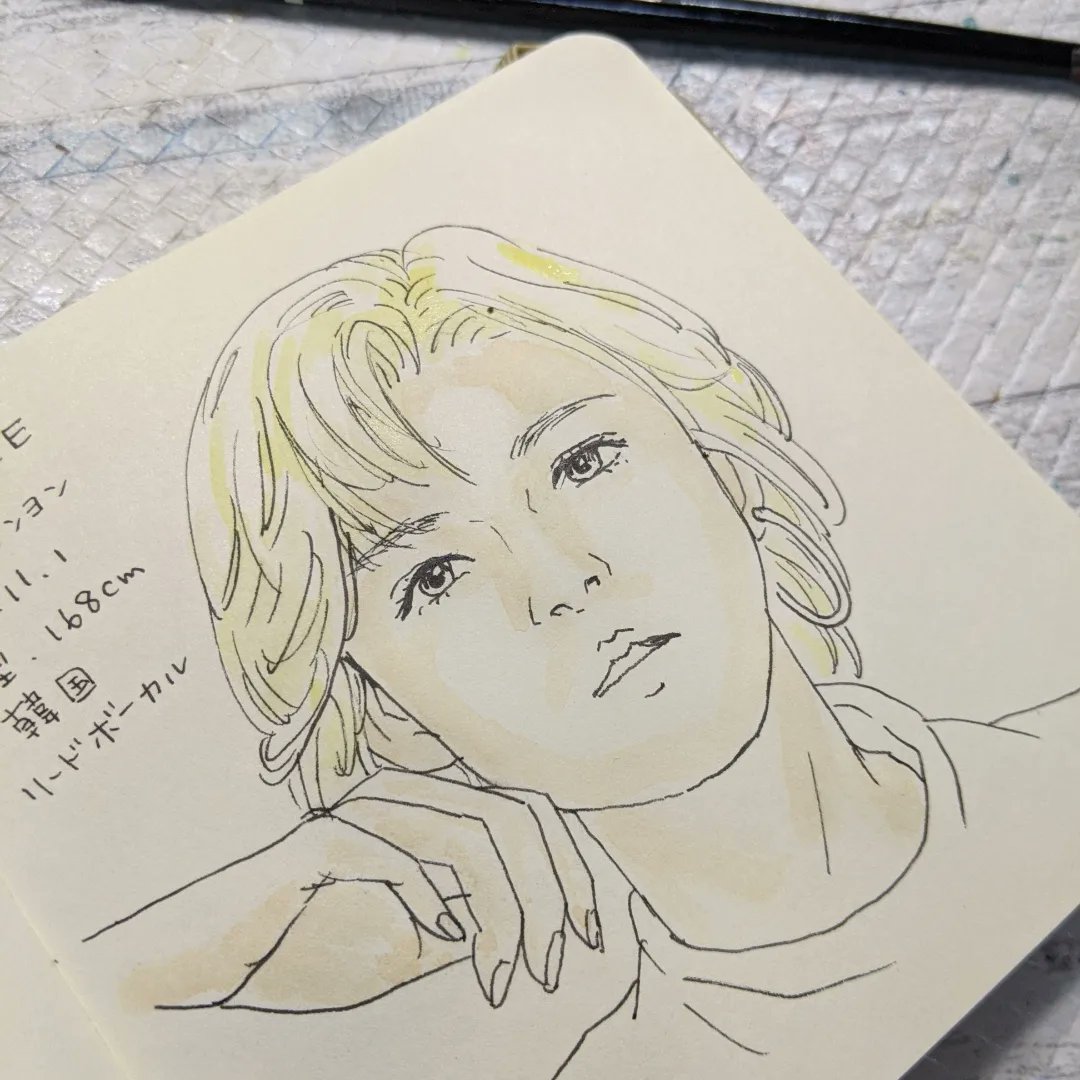 E
ンヨン
.11.1
型.168cm
韓国
リードボーカル